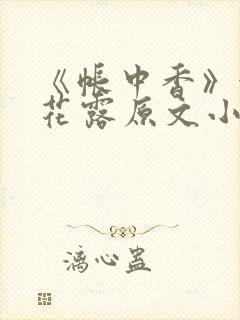 《帐中香》
花露原文小
漓心蛊